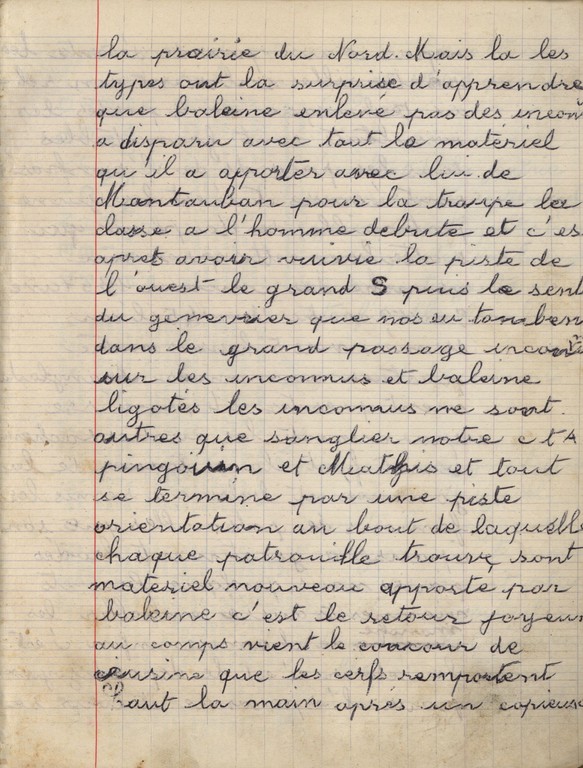 la prairie du Nord. Mais la les
types ont la surprise d'apprendre
que baleine enlevé pas des incon
a disparu avec tout le materiel
qu il a apporter avec lui de
Mantauban pour la troupe la
dasse a l'homme debute et c'es
apret avoir la piste de
l'ouest le grand S puis le sent
du genevrier que nos eu tomben
dans le grand passage
sur les inconnus et baleine
ligotés les inconnus ne sont
autres que sanglier notre c t A
pingouin et Mathis et tout
se termine par une piste
orientation au bout de laquelle
chaque patrouille trouve sont
materiel nouveau apporte par
baleine c'est le retour joyeux
au comps vient le concour de
cuisine que les cerfs remportent
haut la main aprés un copieus